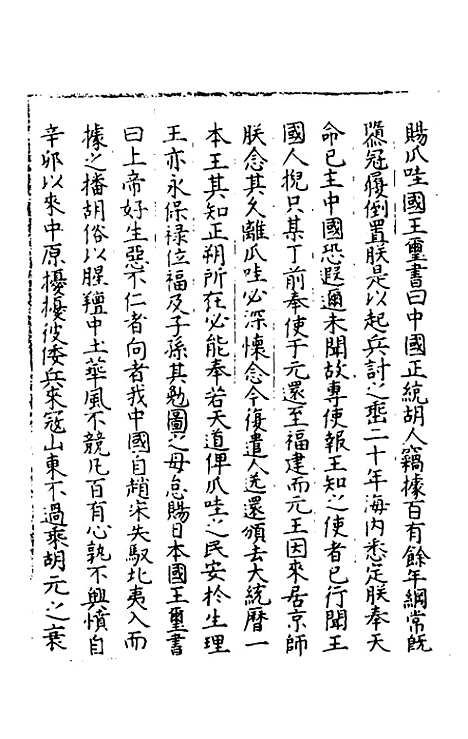 賜爪哇國王璽書曰中國正統胡人竊據百有餘年綱常旣
隳冠履倒置朕是以起兵討之垂二十年海內悉定朕奉天
命已主中國恐遐邇未聞故專使報王知之使者已行聞王
國人捏只某丁前奉使于元還至福建而元王因來居京師
朕念其久離爪哇必深懷念今復遣人送還頒去大統曆一
本王其知正朔所在必能奉若天道俾爪哇之民安於生理
王亦永保祿位福及子孫其勉圖之毋怠賜日本國王璽書
曰上帝好生惡不仁者向者我中國自趙宋失馭北夷入而
據之播胡俗以腥羶中土華風不競凡百有心孰不興憤自
辛卯以來中原擾擾彼倭兵來寇山東不過乘胡元之衰